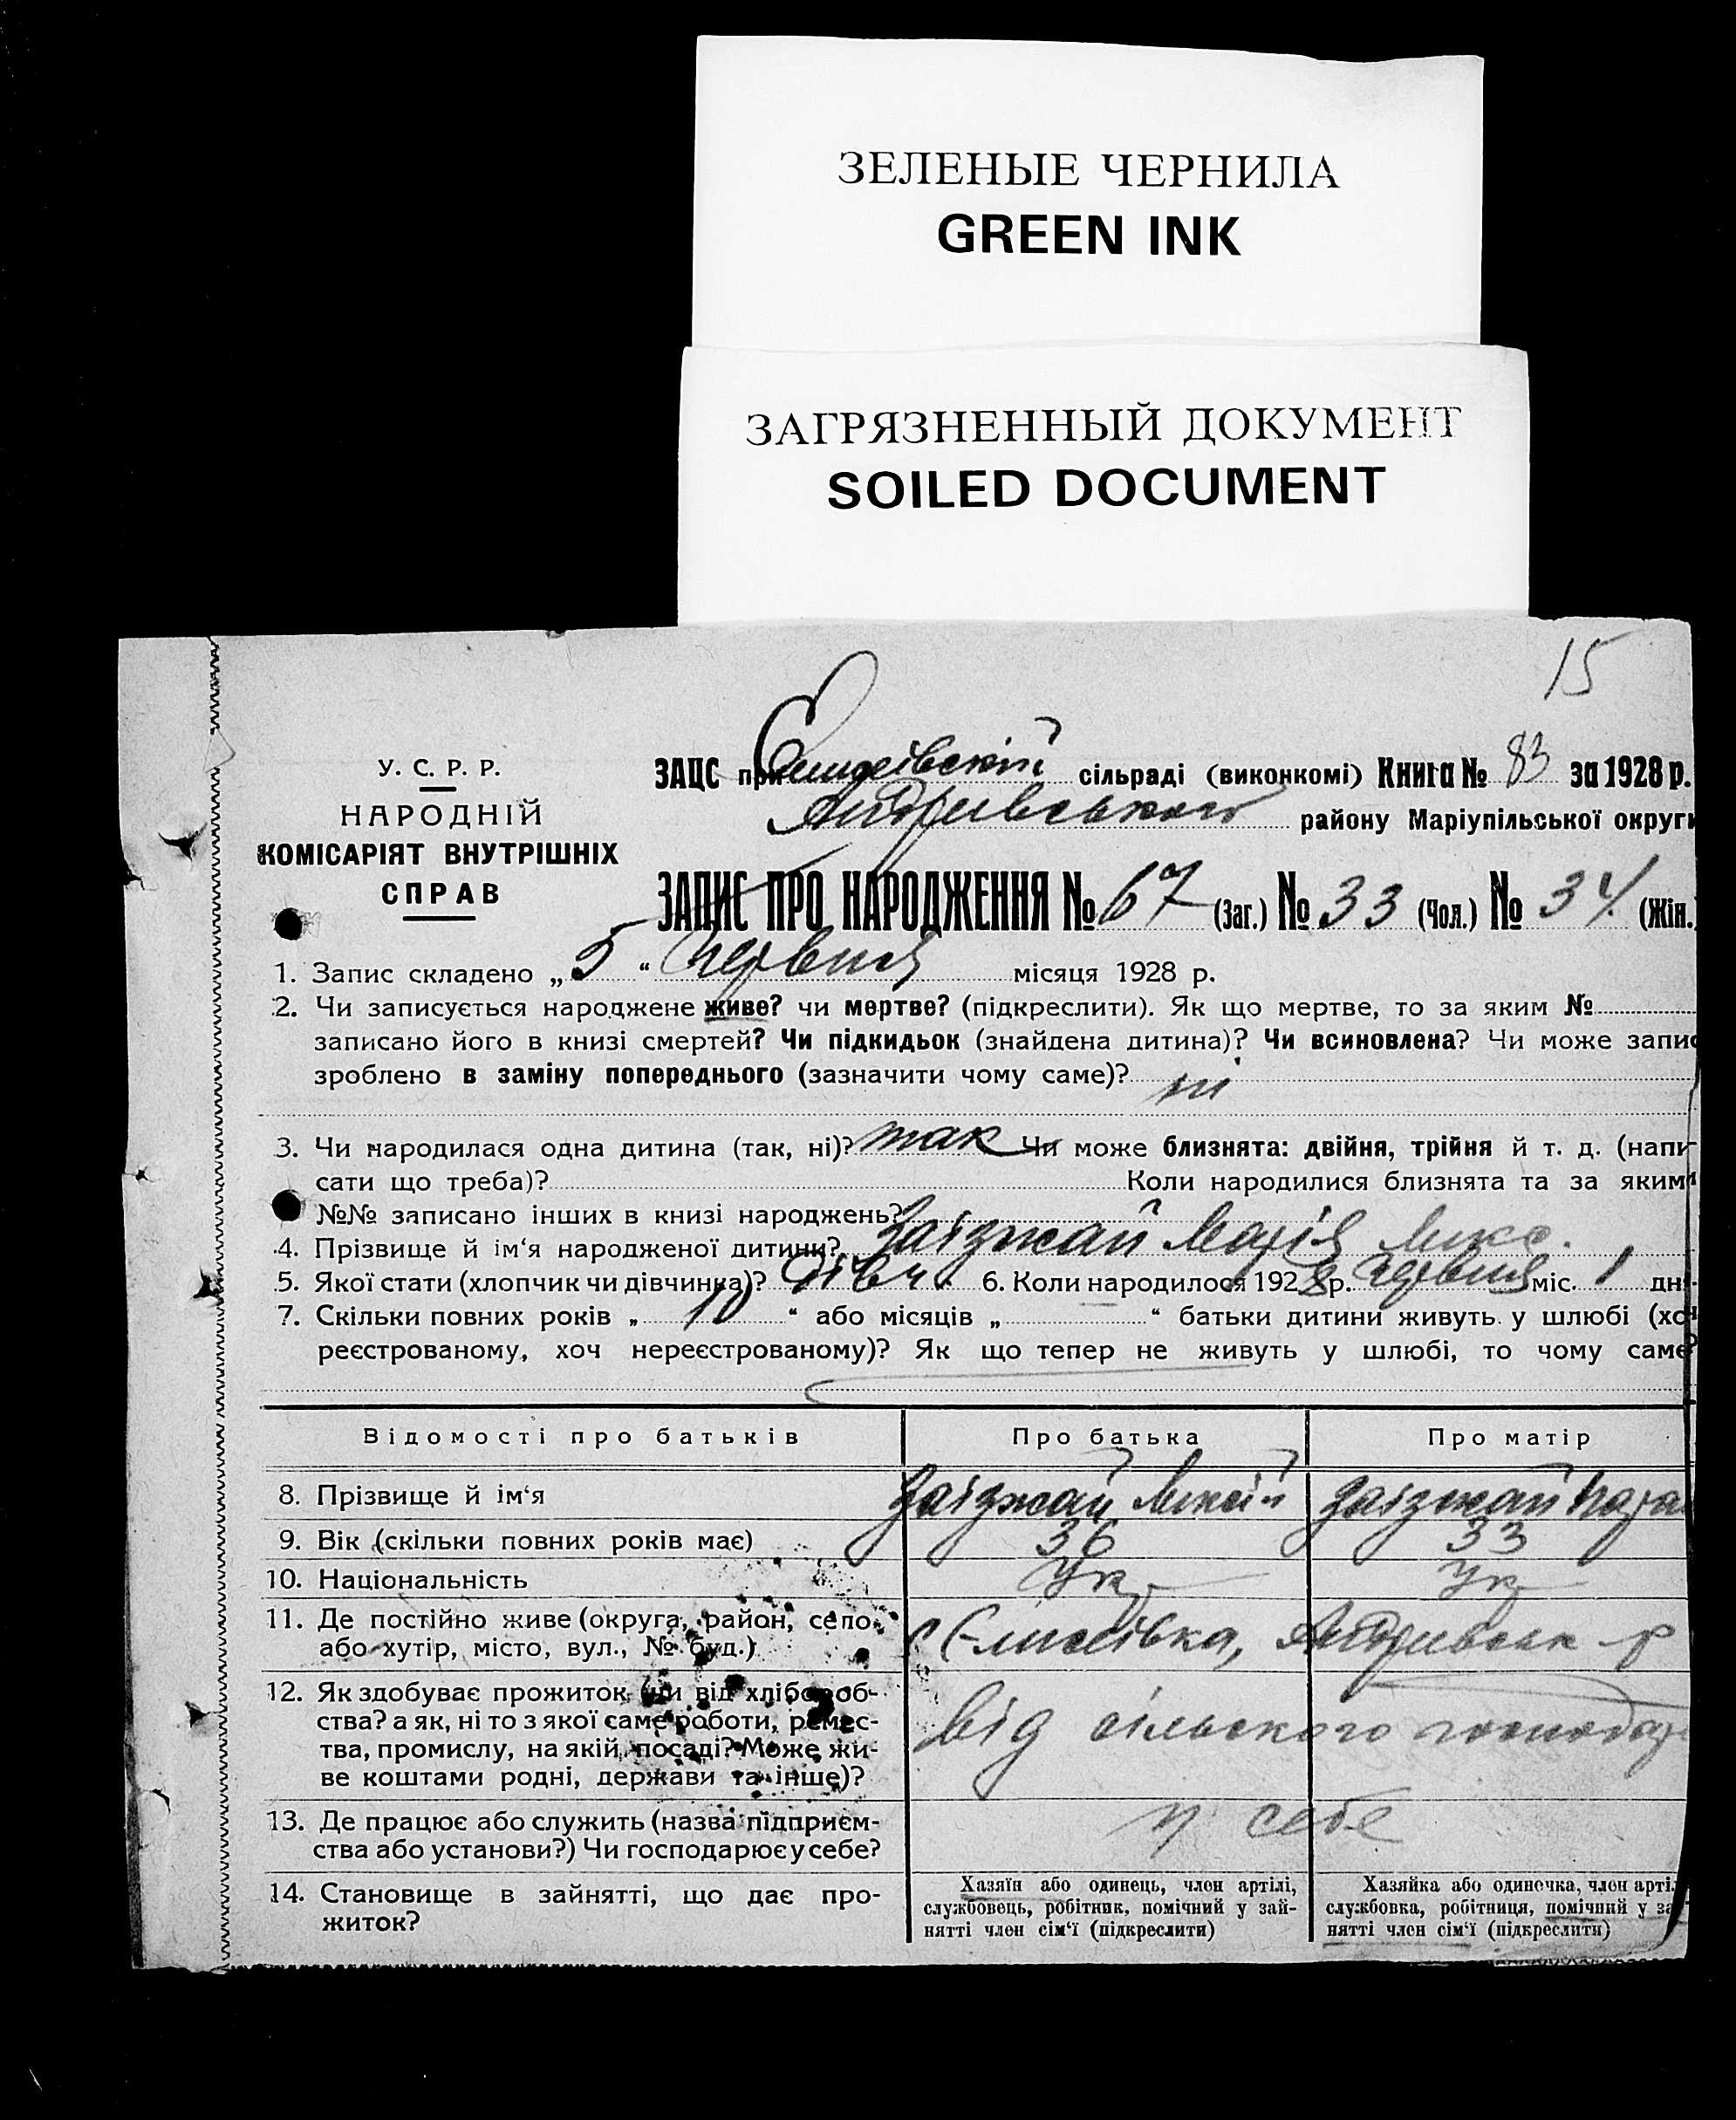 ЗЕЛЕНЫЕ ЧЕРНИЛА
GREEN INK
ЗАГРЯЗНЕННЫЙ ДОКУМЕНТ
SOILED DOCUMENT
15
У. С. Р. Р.
НАРОДНІЙ
КОМІСАРІЯТ ВНУТРІШНІХ
СПРАВ
ЗАЦС при сільраді (виконкомі) Книга № 83 за 1928 р.
району Маріупільської округи
ЗАПИС ПРО НАРОДЖЕННЯ № 67 (Заг.) № 33 (Чол.) № 34 (Жін.)
1. Запис складено „ 5 “ Червня місяця 1928 р.
2. Чи записується народжене живе? чи мертве? (підкреслити). Як що мертве, то за яким №
записано його в книзі смертей? Чи підкидьок (знайдена дитина)? Чи всиновлена? Чи може запис
зроблено в заміну попереднього (зазначити чому саме)? ні
3. Чи народилася одна дитина (так, ні)? так Чи може близнята: двійня, трійня й т. д. (напи-
сати що треба)? Коли народилися близнята та за якими
№№ записано інших в книзі народжень?
4. Прізвище й ім‘я народженої дитини? Заїзжай Марія Микс.
5. Якої стати (хлопчик чи дівчинка)? Дівч. 6. Коли народилося 1928 р. Червня міс. 1 дня.
7. Скільки повних років „ 10 “ або місяців „ “ батьки дитини живуть у шлюбі (хоч
реєстрованому, хоч нереєстрованому)? Як що тепер не живуть у шлюбі, то чому саме?
Відомості про батьків Про батька Про матір
8. Прізвище й ім‘я Заїзжай Заїзжай
9. Вік (скільки повних років має) 36 33
10. Національність Укр Укр
11. Де постійно живе (округа, район, село
або хутір, місто, вул., № буд.)
12. Як здобуває прожиток (чи від хлібороб-
ства? а як, ні то з якої саме роботи, ремес-
тва, промислу, на якій посаді? Може жи-
ве коштами родні, держави та інше)?
від сільского господар
13. Де працює або служить (назва підприєм-
ства або установи?) Чи господарює у себе?
у себе
14. Становище в зайнятті, що дає про-
житок?
Хазяїн або одинець, член артілі,
службовець, робітник, помічний у зай-
нятті член сім‘ї (підкреслити)
Хазяйка або одиночка, член артіл
службовка, робітниця, помічний у за
нятті член сім‘ї (підкреслити)